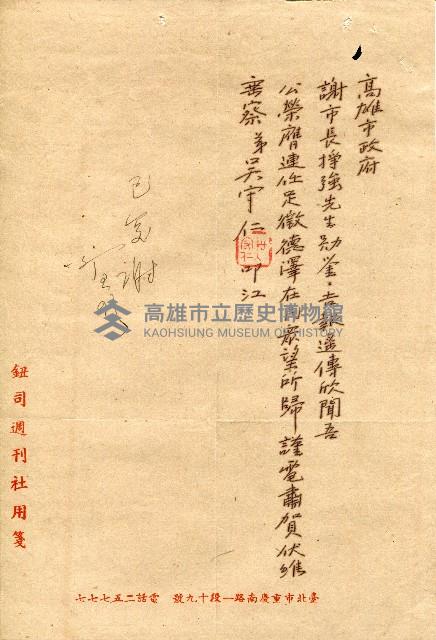 高雄市政府
謝市長掙強先生勛鑒吉報遙傳欣聞吾
公榮膺連任足徵德澤在民衆望所歸謹電肅賀伏維
垂察弟吳宇仁叩江
已复
謝
高雄市立歷史博物館
KAOHSIUNG MUSEUM OF HISTORY
鈕司週刊社用箋
臺北市重慶南路一段十九號 電話二五七七七七